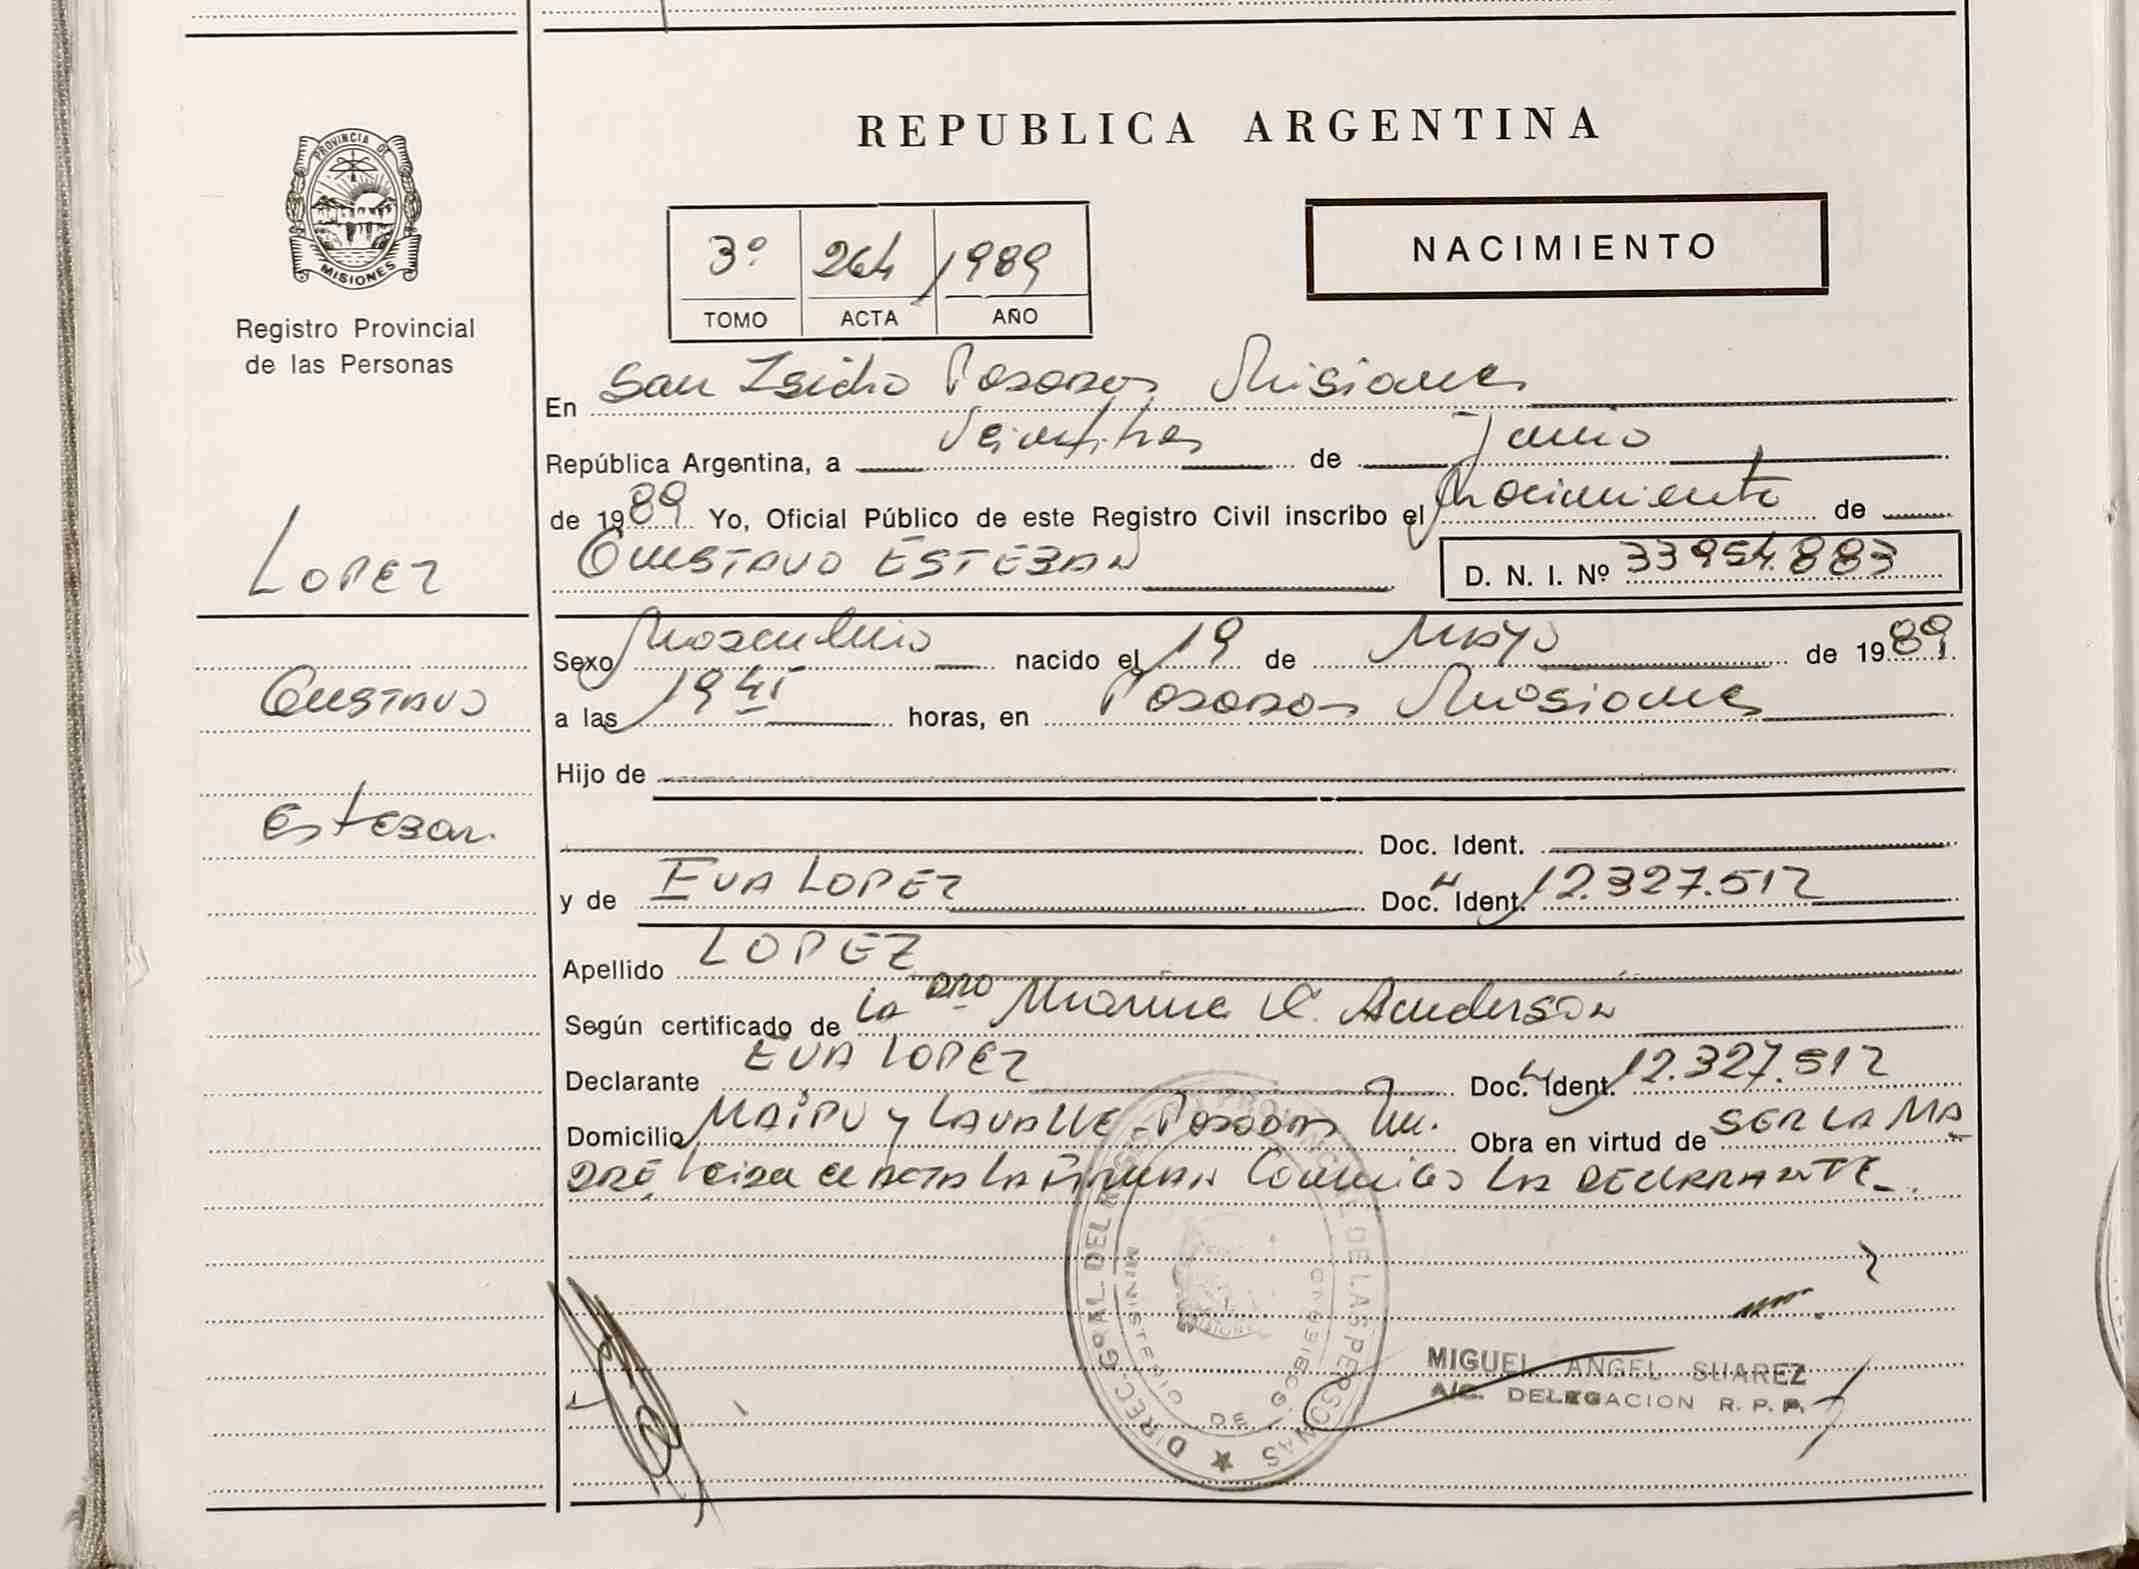 REPUBLICA ARGENTINA
PROVINCIA DE
MISIONES
Registro Provincial
de las Personas
3º 264 1989
TOMO ACTA AÑO
NACIMIENTO
En San Isidro Posadas Misiones
República Argentina, a Veintitres de Junio
de 1989 Yo, Oficial Público de este Registro Civil inscribo el Nacimiento de
GUSTAVO ESTEBAN D. N. I. Nº 33954.883
LOPEZ
Gustavo
Esteban.
Sexo Masculino nacido el 19 de Mayo de 1989
a las 1945 horas, en Posadas Misiones
Hijo de
Doc. Ident.
y de EVA LOPEZ Doc. Ident. 12.327.512
Apellido LOPEZ
Según certificado de La DRA C. Anderson
Declarante EVA LOPEZ Doc. Ident. 12.327.512
Domicilio MAIPU y LAVALLE Posadas Mnes. Obra en virtud de SER LA MA
DRE, leida el ACTA LA FIRMAN Conmigo LA DECLARANTE.
DIREC. Gral. DEL REG. PROVINCIAL DE LAS PERSONAS
MINISTERIO DE GOBIERNO
MISIONES
MIGUEL ANGEL SUAREZ
A/C. DELEGACION R. P. P.